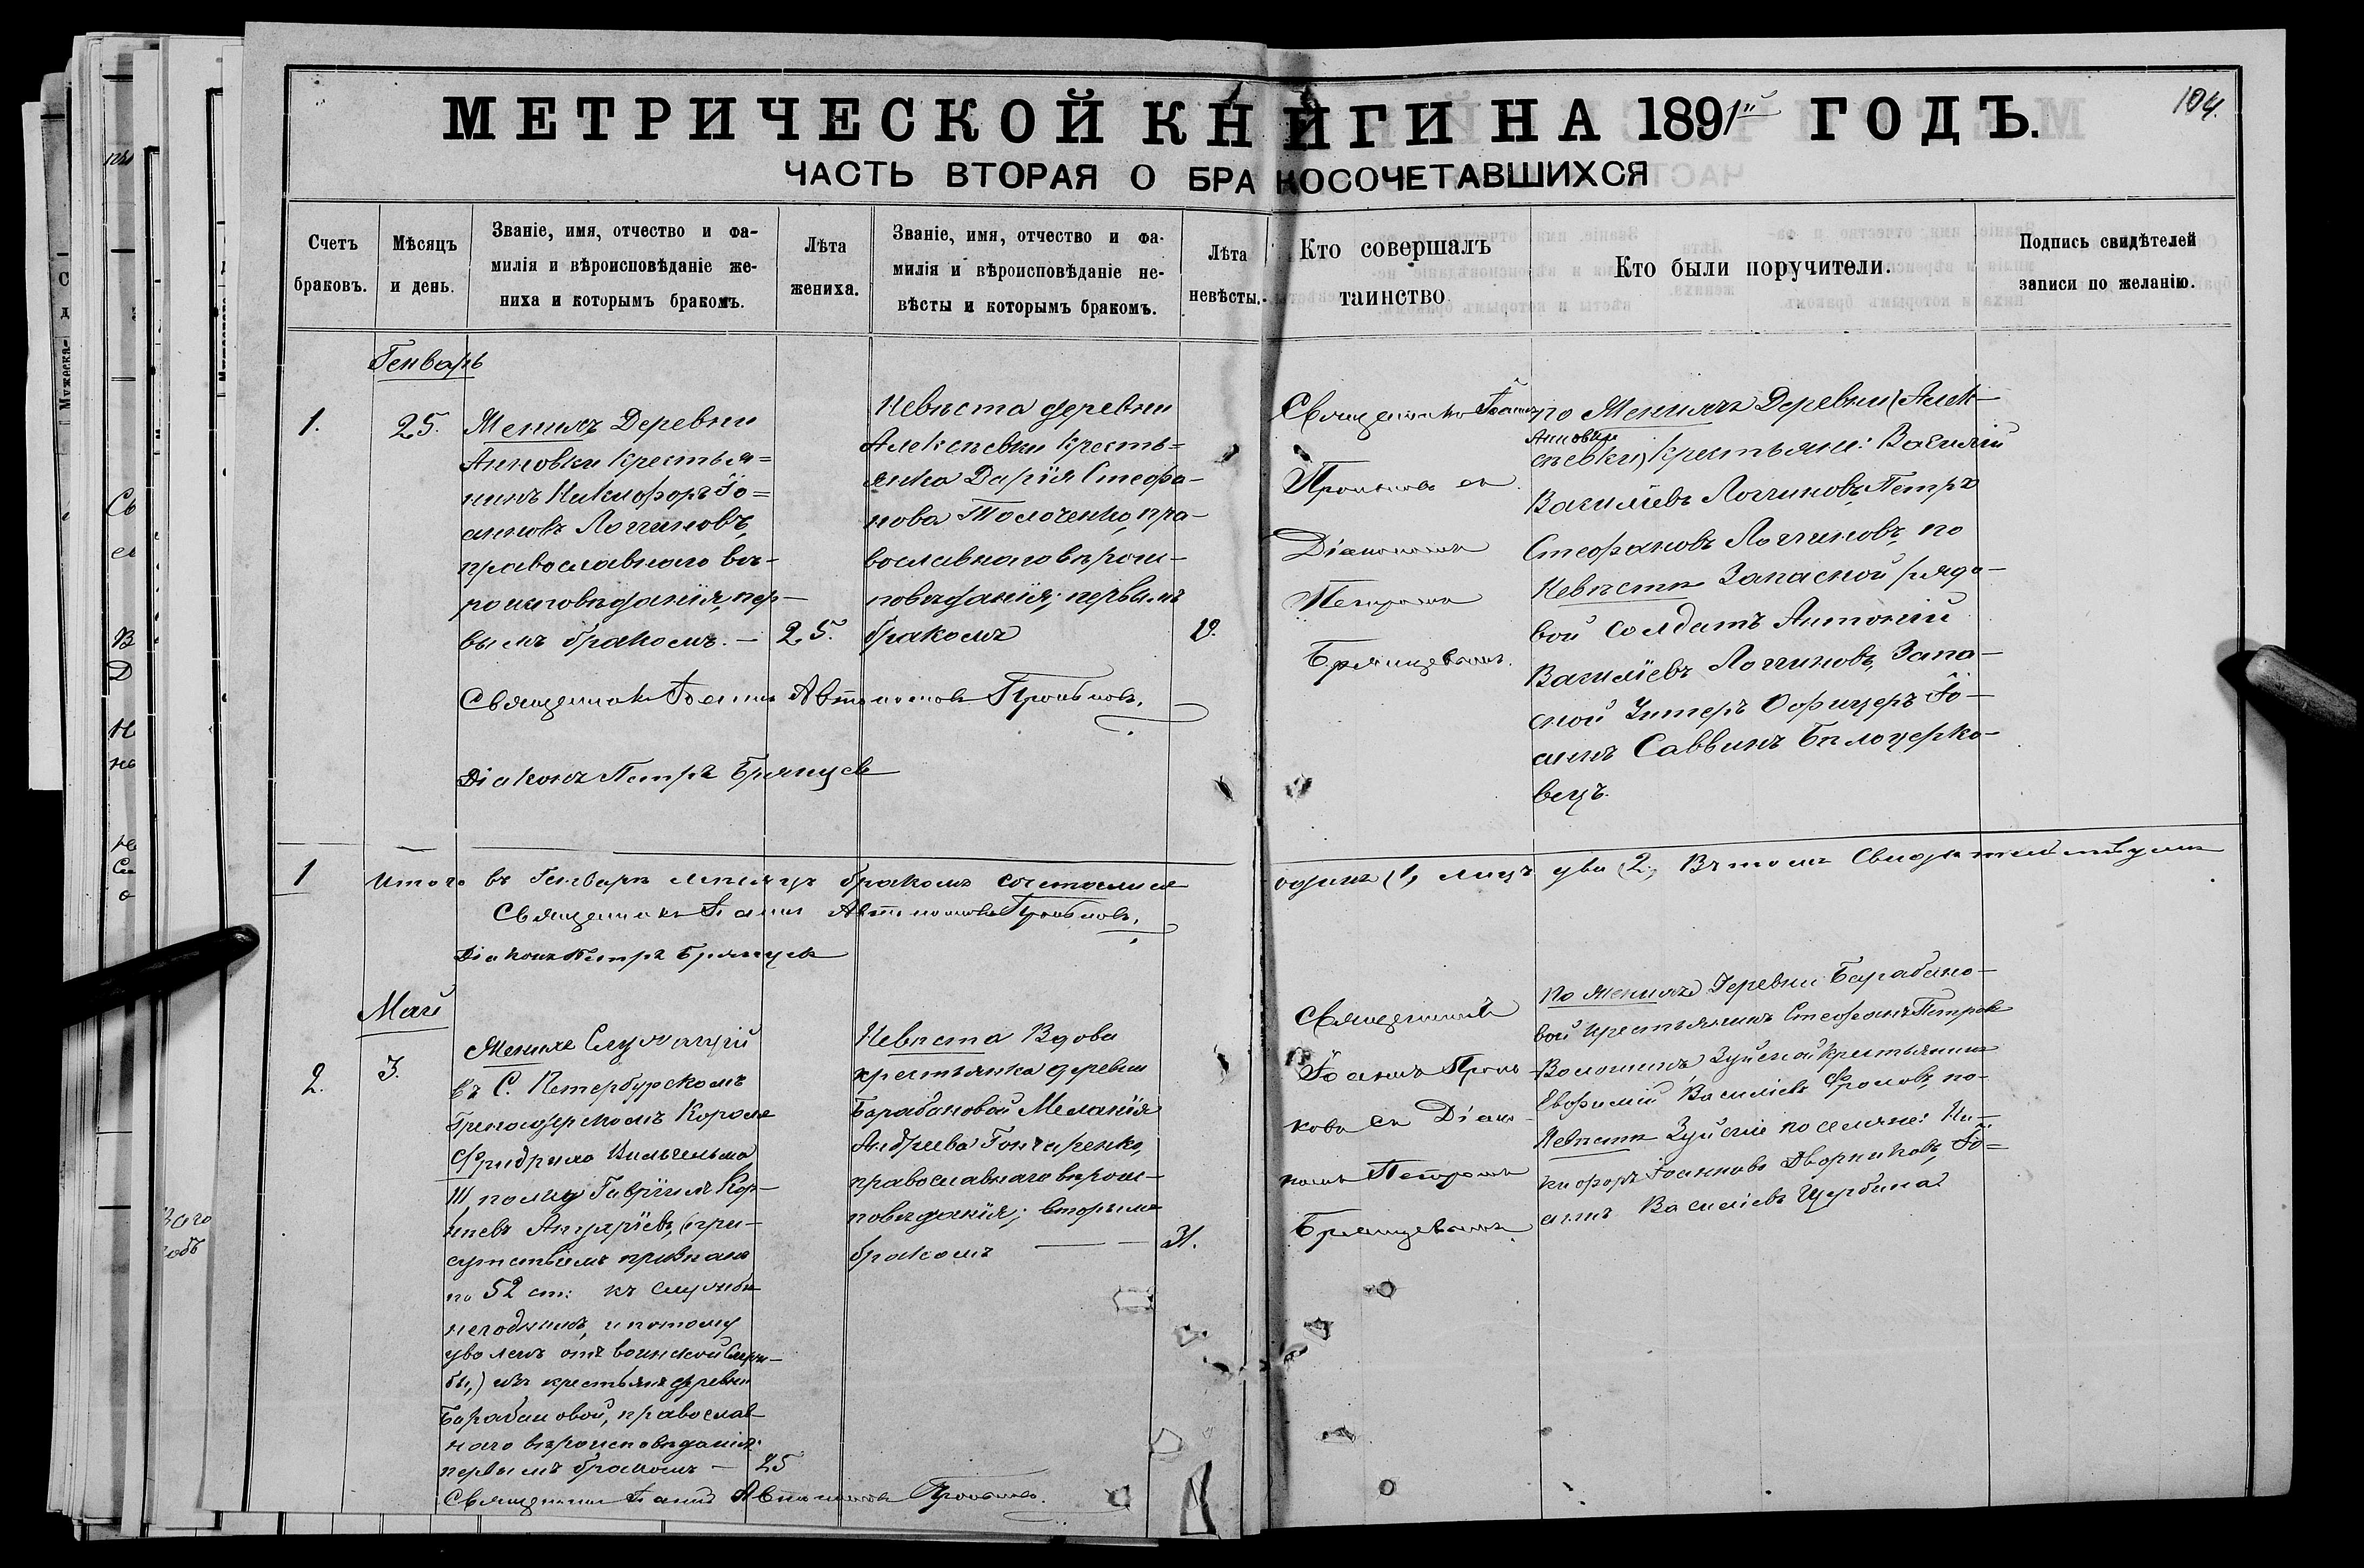 МЕТРИЧЕСКОЙ КНИГИ НА 1891й ГОДЪ.
104.
ЧАСТЬ ВТОРАЯ О БРАКОСОЧЕТАВШИХСЯ
Счетъ
браковъ.
Мѣсяцъ
и день.
Званіе, имя, отчество и фа-
милія и вѣроисповѣданіе же-
ниха и которымъ бракомъ.
Лѣта
жениха.
Званіе, имя, отчество и фа-
милія и вѣроисповѣданіе не-
вѣсты и которымъ бракомъ.
Лѣта
невѣсты.
Кто совершалъ
таинство
Кто были поручители.
Подпись свидѣтелей
записи по желанію.
Генварь
1.
25.
Женихъ Деревни
Анновки крестья=
нинъ Никифоръ Іо=
анновъ Логгиновъ,
православнаго вѣ-
роисповѣданія, пер-
вымъ бракомъ. —
25.
Невѣста деревни
Алексѣевки кресть=
янка Дарія Стефа-
нова Толоченко, пра-
вославнаго вѣроис-
повѣданія; первымъ
бракомъ
19.
Священникъ Іоаннъ
съ
Діакономъ
Петромъ
Брянцевымъ.
по Женихѣ Деревни (Алек-
Анновки
сѣевки) крестьяне: Василій
Василіевъ Логгиновъ, Петръ
Стефановъ Логгиновъ, по
Невѣстѣ Запасной рядо-
вой солдатъ Антоній
Василіевъ Логгиновъ, Запа-
сной Унтеръ Офицеръ Іо-
аннъ Саввинъ Бѣлоцерко-
вецъ.
Священникъ Іоаннъ
Діаконъ Петръ Брянцевъ
1
Итого въ Генварѣ мѣсяцѣ бракомъ сочеталися
одинъ (1, лицъ два (2, Въ томъ Свидѣтельствуемъ
Священникъ Іоаннъ
Діаконъ Петръ Брянцевъ
Май
2.
3.
Женихъ Служащій
въ С. Петербургскомъ
Гренадерскомъ Короля
Фридриха Вильгельма
III полку Гавріилъ Кор-
нѣевъ (при-
сутствіемъ признанъ
по 52 ст: къ службѣ
негоднымъ, и потому
уволенъ отъ воинской служ-
бы,) изъ крестьянъ деревни
Барабановой, православ-
наго вѣроисповѣданія:
первымъ бракомъ —
25
Невѣста Вдова
крестьянка деревни
Барабановой Меланія
Андреева Гончаренко,
православнаго вѣроис-
повѣданія; вторымъ
бракомъ — —
31.
Священникъ
Іоаннъ
съ Діако-
номъ Петромъ
Брянцевымъ.
По Женихѣ Деревни Барабано-
вой крестьянинъ Стефанъ Петровъ
Волошинъ, Зуйской крестьянинъ
Евфимій Василіевъ Фроловъ, по-
Невѣстѣ Зуйскіе поселяне: Ни-
кифоръ Іоанновъ Дворниковъ, Іо=
аннъ Василіевъ Щербина
Священникъ Іоаннъ